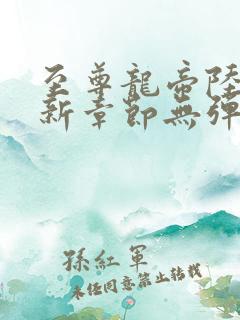 至尊龍帝陸
新章節無彈
孫紅軍
未经同意禁止转载